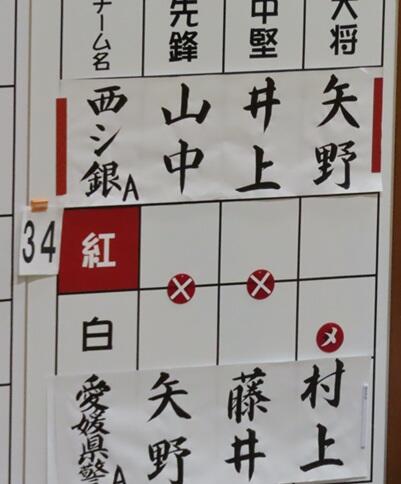 チーム名 先鋒 中堅 大将
西シ銀A 山中 井上 矢野
34
紅
白
メ
愛媛県警A 矢野 藤井 村上